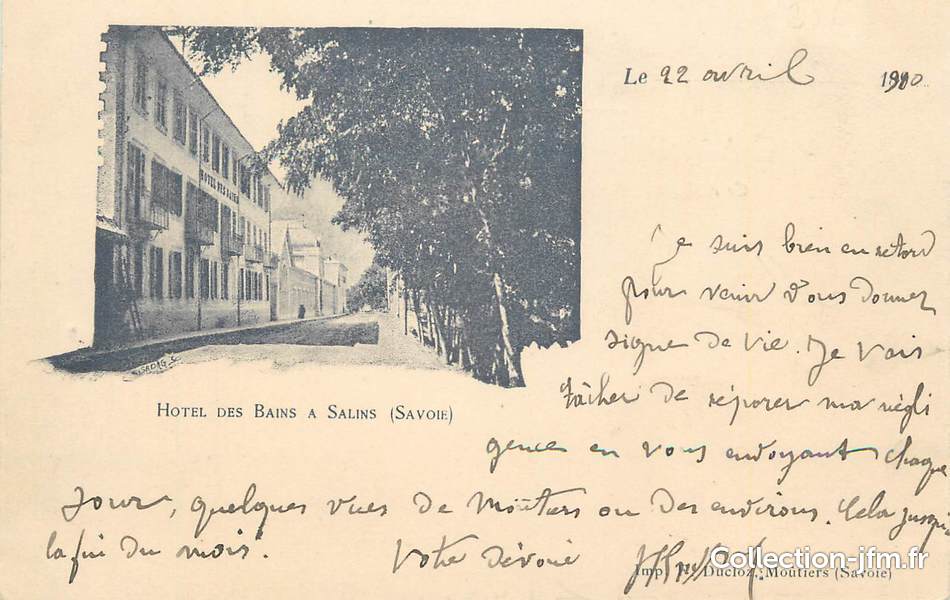 Le 22 avril 1900
HOTEL DES BAINS
HOTEL DES BAINS A SALINS (SAVOIE)
Je suis bien en retard
pour venir vous donner
signe de vie. Je vais
tâcher de réparer ma négli
gence en vous envoyant chaque
jour, quelques vues de Moûtiers ou des environs. Cela jusqu'à
la fin du mois.
Votre dévoué
Imp. Ducloz, Moûtiers (Savoie)
Collection-jfm.fr